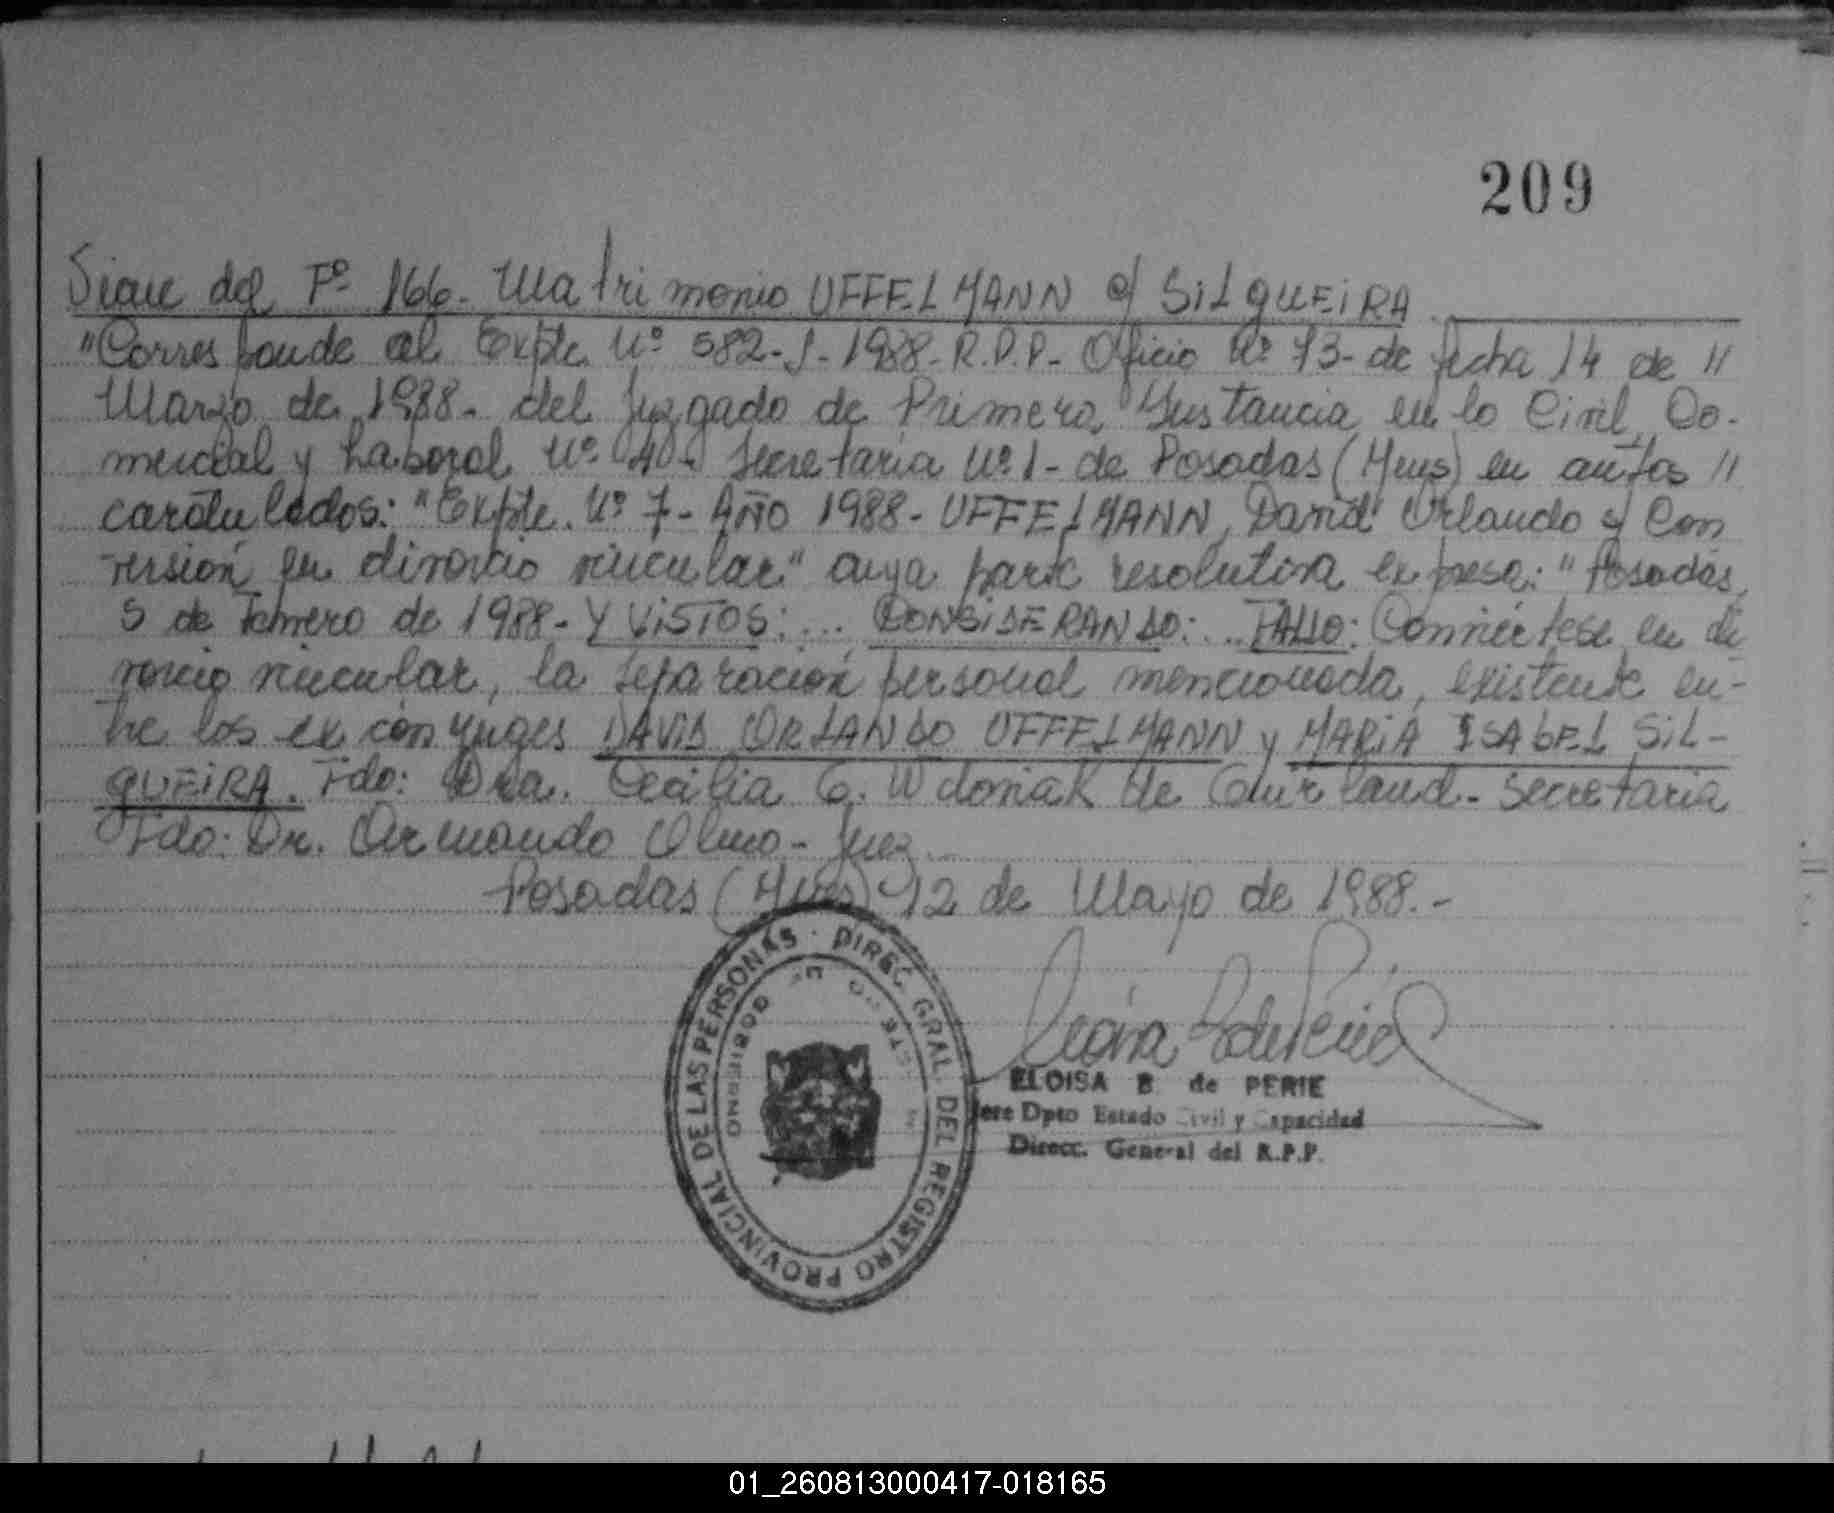 209
Sigue del Fº 166. Matrimonio UFFELMANN c/ SILGUEIRA
"Corresponde al Expte Nº 582-J-1988-R.P.P- Oficio Nº 73- de fecha 14 de //
Marzo de 1988- del Juzgado de Primera Instancia en lo Civil, Co-
mercial y Laboral Nº 4- Secretaría Nº 1- de Posadas (Mnes) en autos //
caratulados: "Expte. Nº 7- AÑO 1988- UFFELMANN, David Orlando s/ Con
versión en divorcio vincular" cuya parte resolutiva expresa: "Posadas,
5 de Febrero de 1988- Y VISTOS: ... CONSIDERANDO: ... FALLO: Conviértese en di
vorcio vincular, la separación personal mencionada, existente en-
tre los ex cónyuges DAVID ORLANDO UFFELMANN y MARIA ISABEL SIL-
GUEIRA. Fdo: Dra. Cecilia G. Wdoniak de Guirland- Secretaria
Fdo: Dr. Armando Olmo- Juez
Posadas (Mnes) 12 de Mayo de 1988.-
DIREC. GRAL. DEL REGISTRO PROVINCIAL DE LAS PERSONAS
GOBIERNO DE
ELOISA B. de PERIE
Jefe Dpto Estado Civil y Capacidad
Direcc. General del R.P.P.
01_260813000417-018165